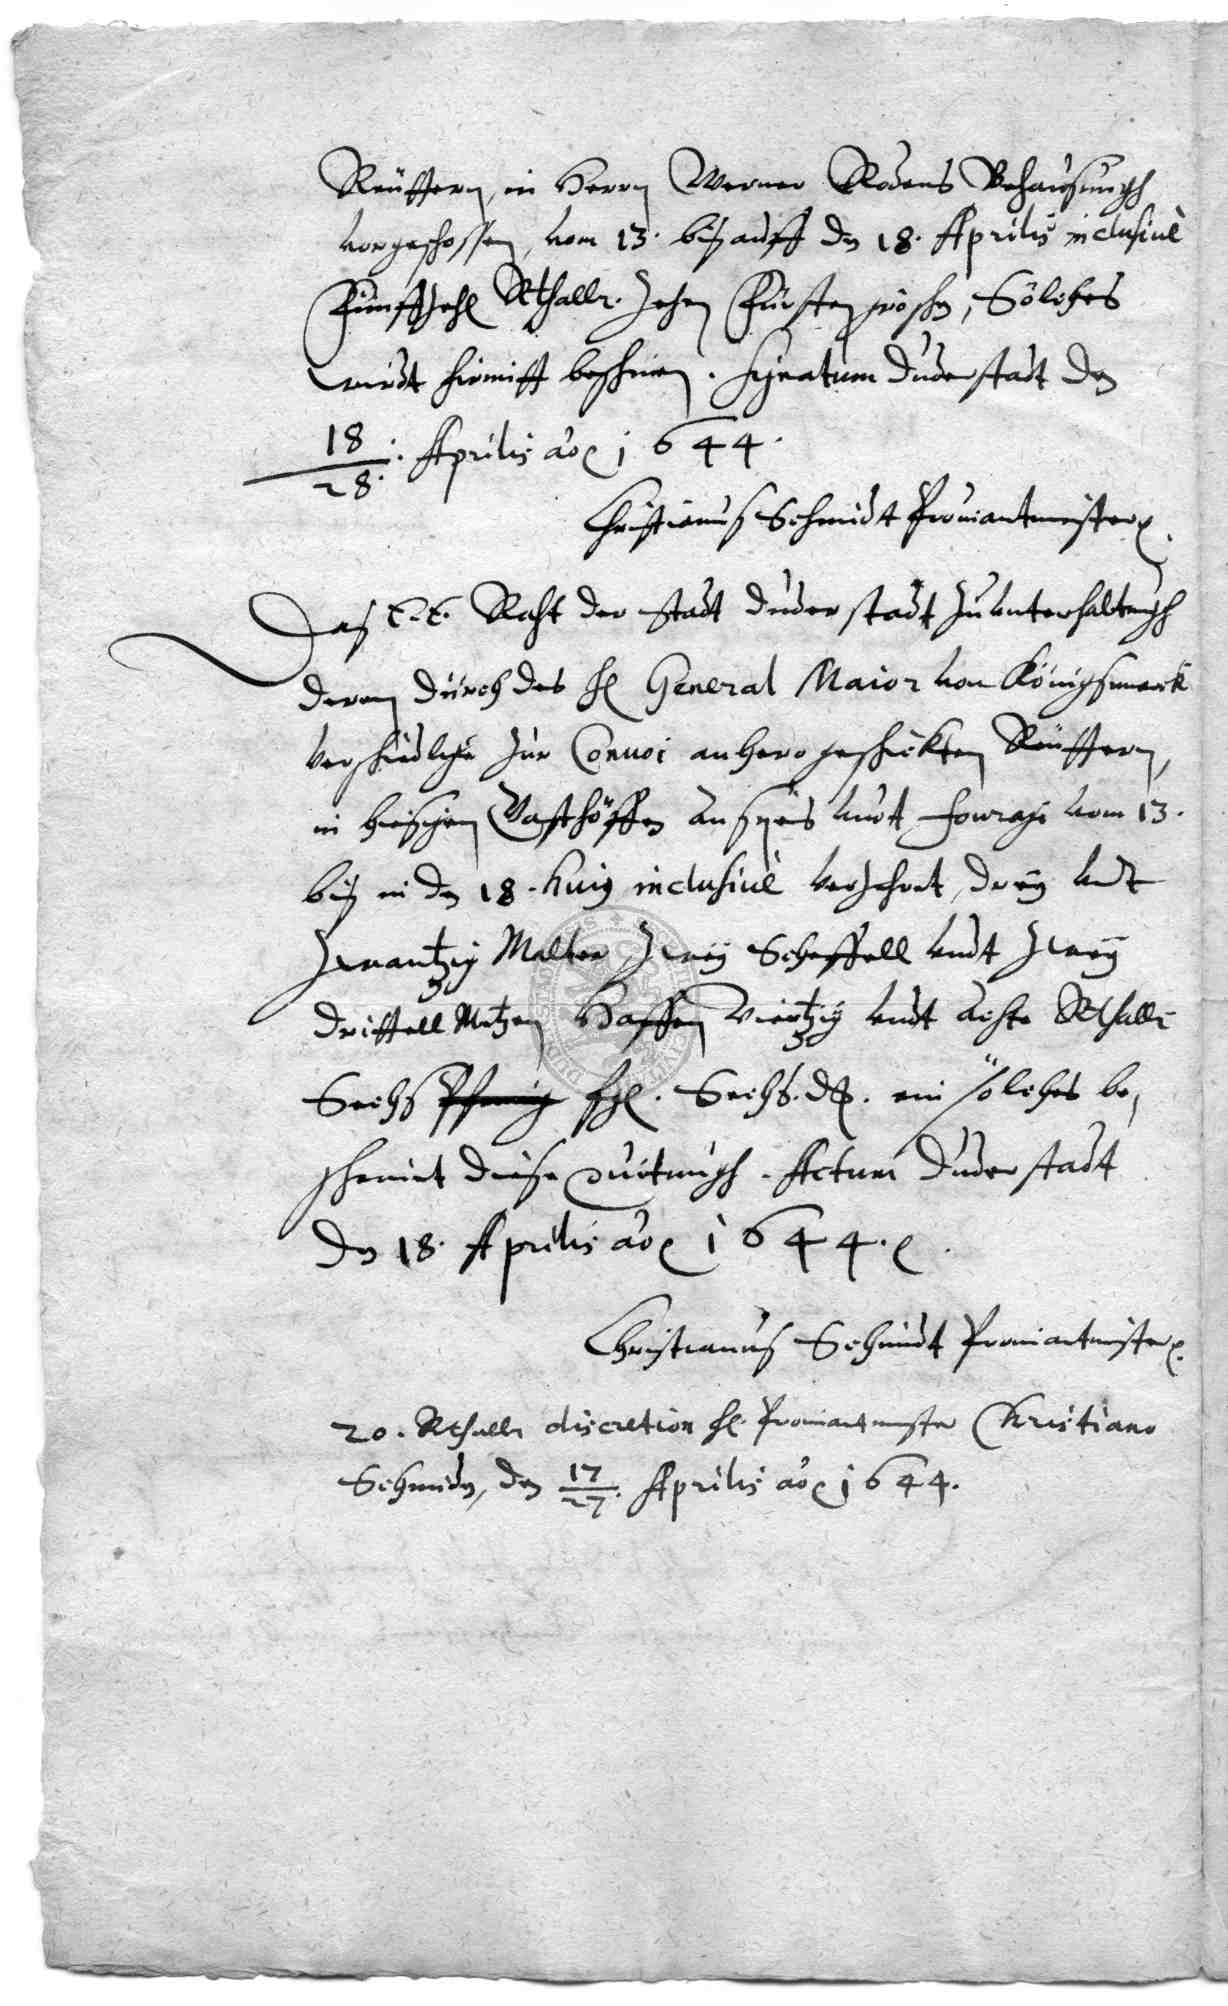 Reüttern, in Herrn Werner Rodens Behausungh
vorgeschossen, vom 13. biß auff den 18. Aprilis inclusivè
Fünffzehen Rthallr. zehen Fürstengroschen, Sölches
wirdt hirmitt bescheinet. Signatum Duderstadt den
18/28. Aprilis ao 1644.
Christianus Schmidt Proviantmeister
Daß E. E. Raht der Stadt Duderstadt zu unterhaltungh
deren durch des H General Maior von Königsmarck
zur Convoi anhero geschickten Reüttern,
in hiesigen Gasthöffen an speis undt fourage vom 13.
biß in den 18. huius inclusivè verzehret, dreÿ undt
zwantzig Malter zweÿ Scheffell undt zweÿ
drittell Metzen Haffern viertzig undt achte Rthallr
Sechs Pfennig fgl. Sechs d. ein sölches be,
scheinet diese Quitungh. Actum Duderstadt
den 18. Aprilis ao 1644.
Christianus Schmidt Proviantmeister
20. Rthallr discretion H. Proviantmeister Christiano
Schmidten, den 17/27. Aprilis ao 1644.